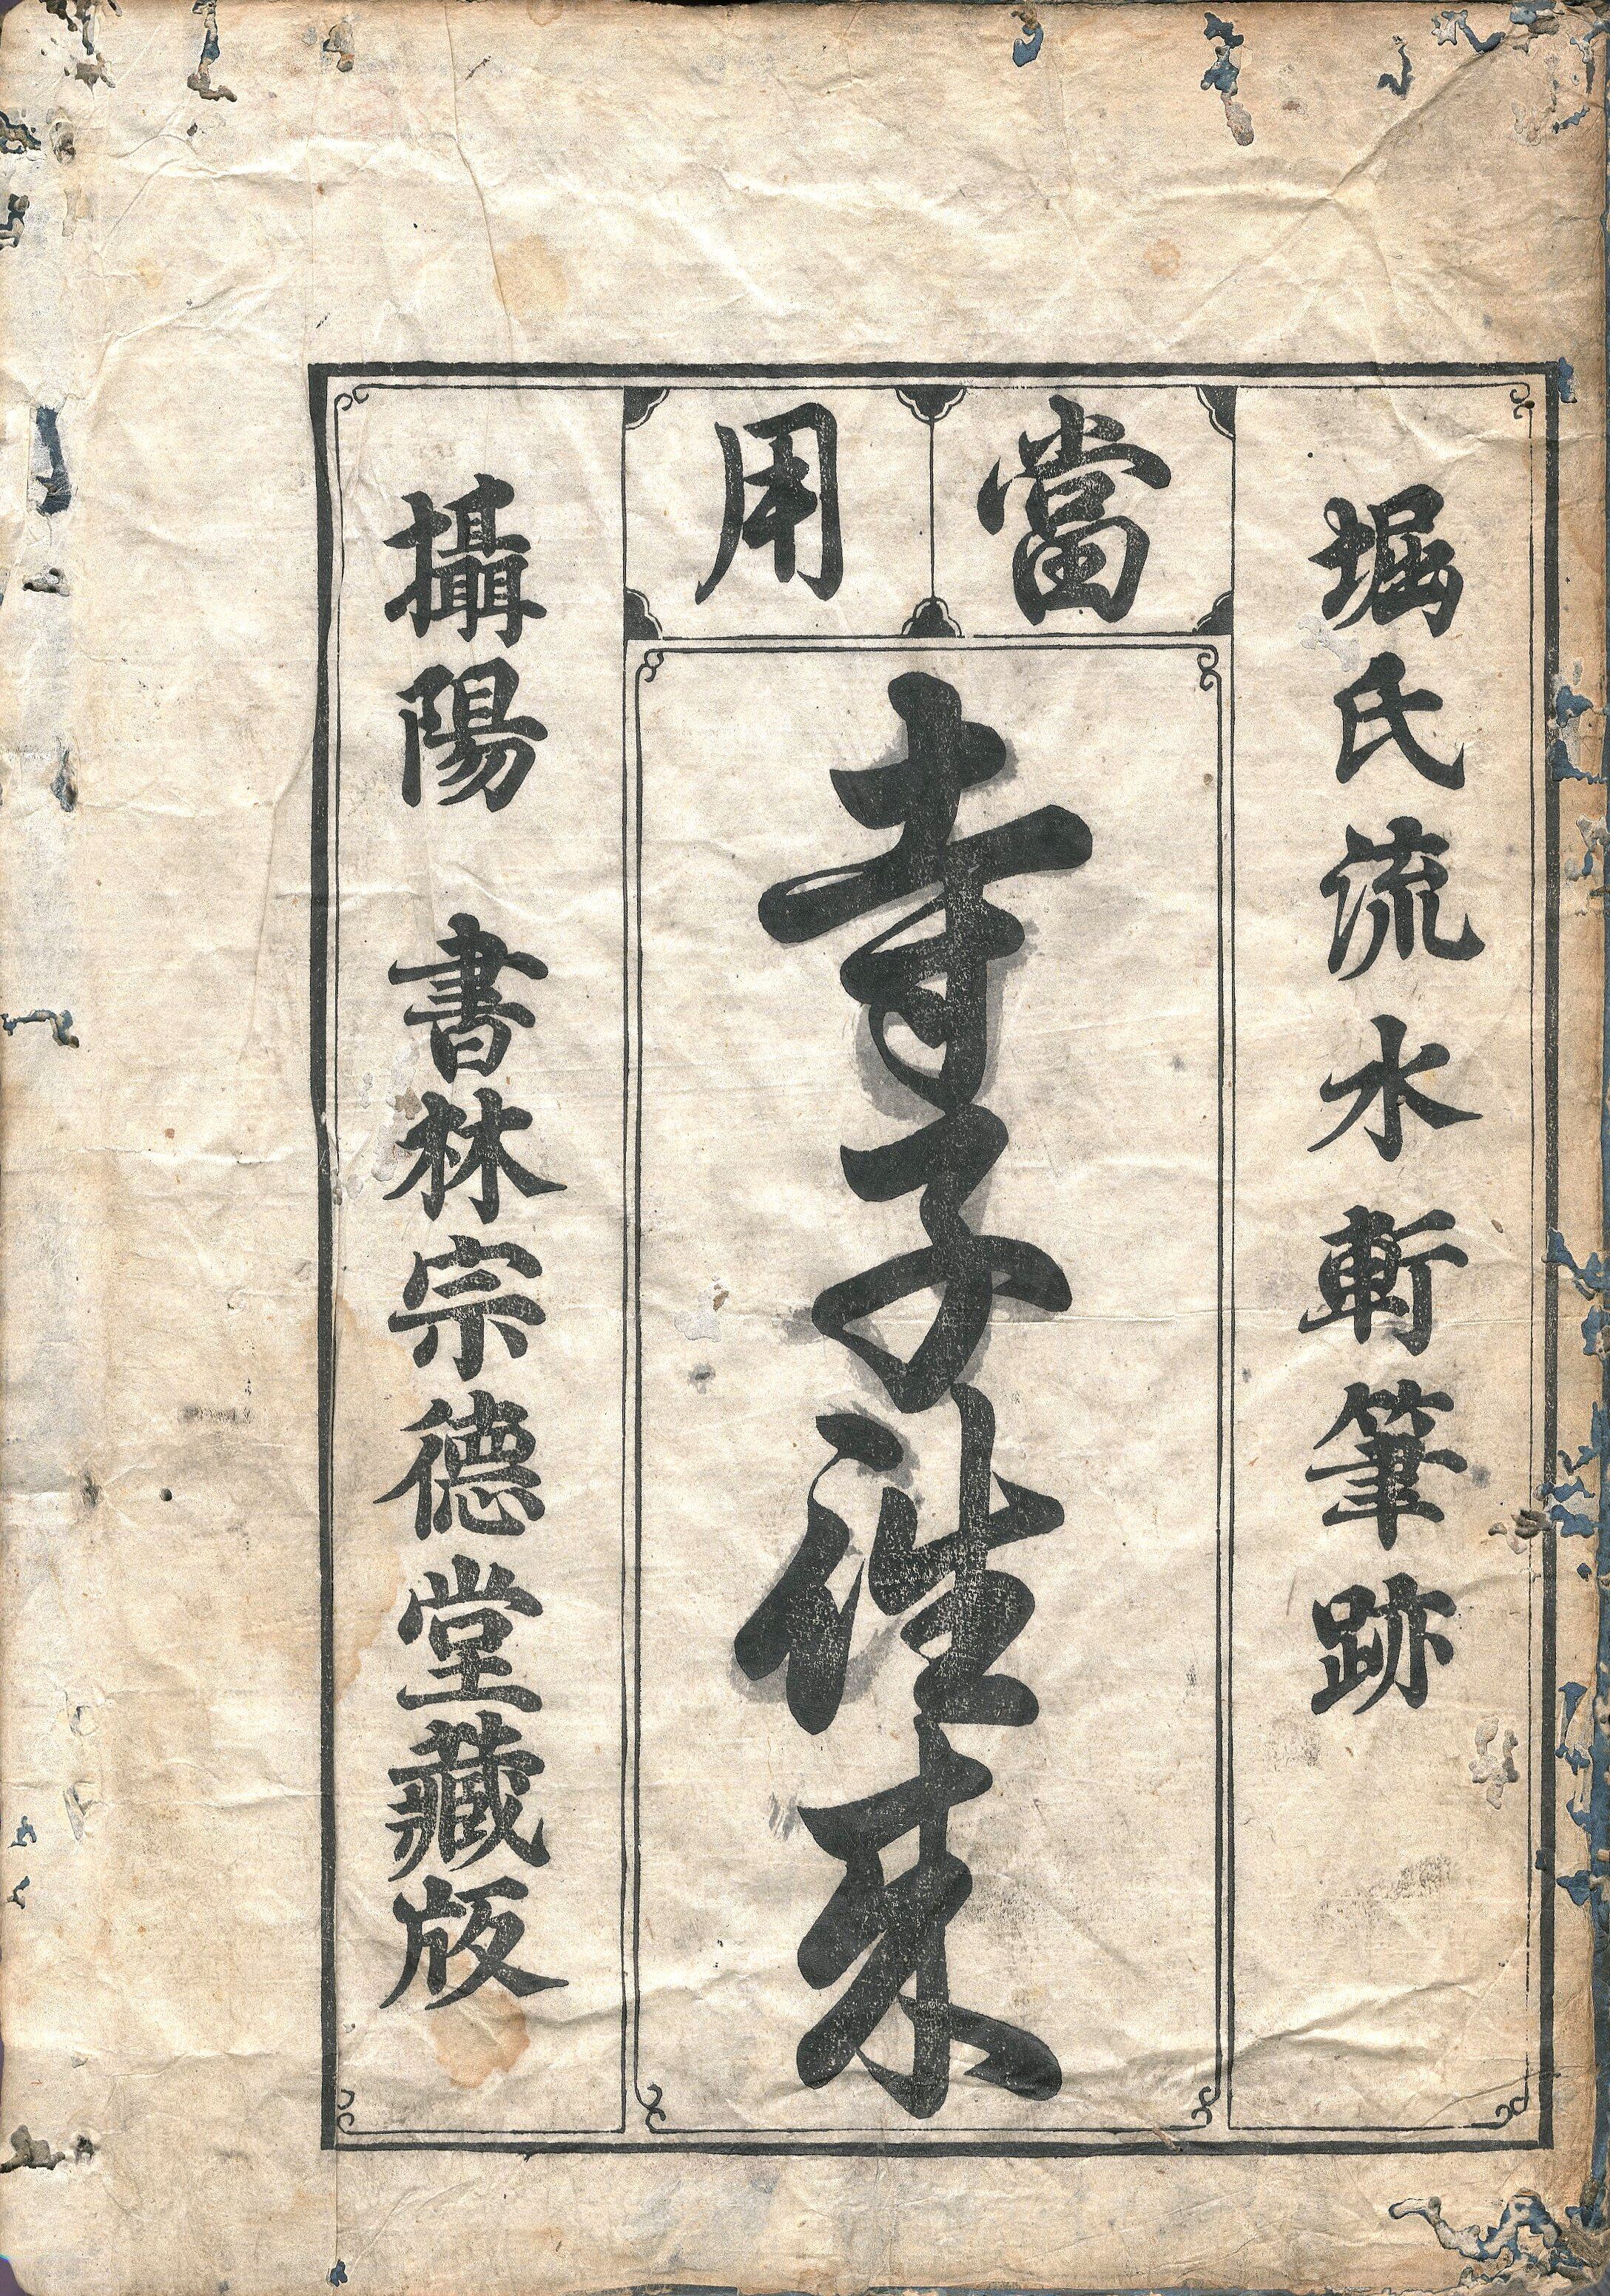 堀氏流水軒筆跡
當用
寺子徃来
攝陽 書林宗德堂藏版